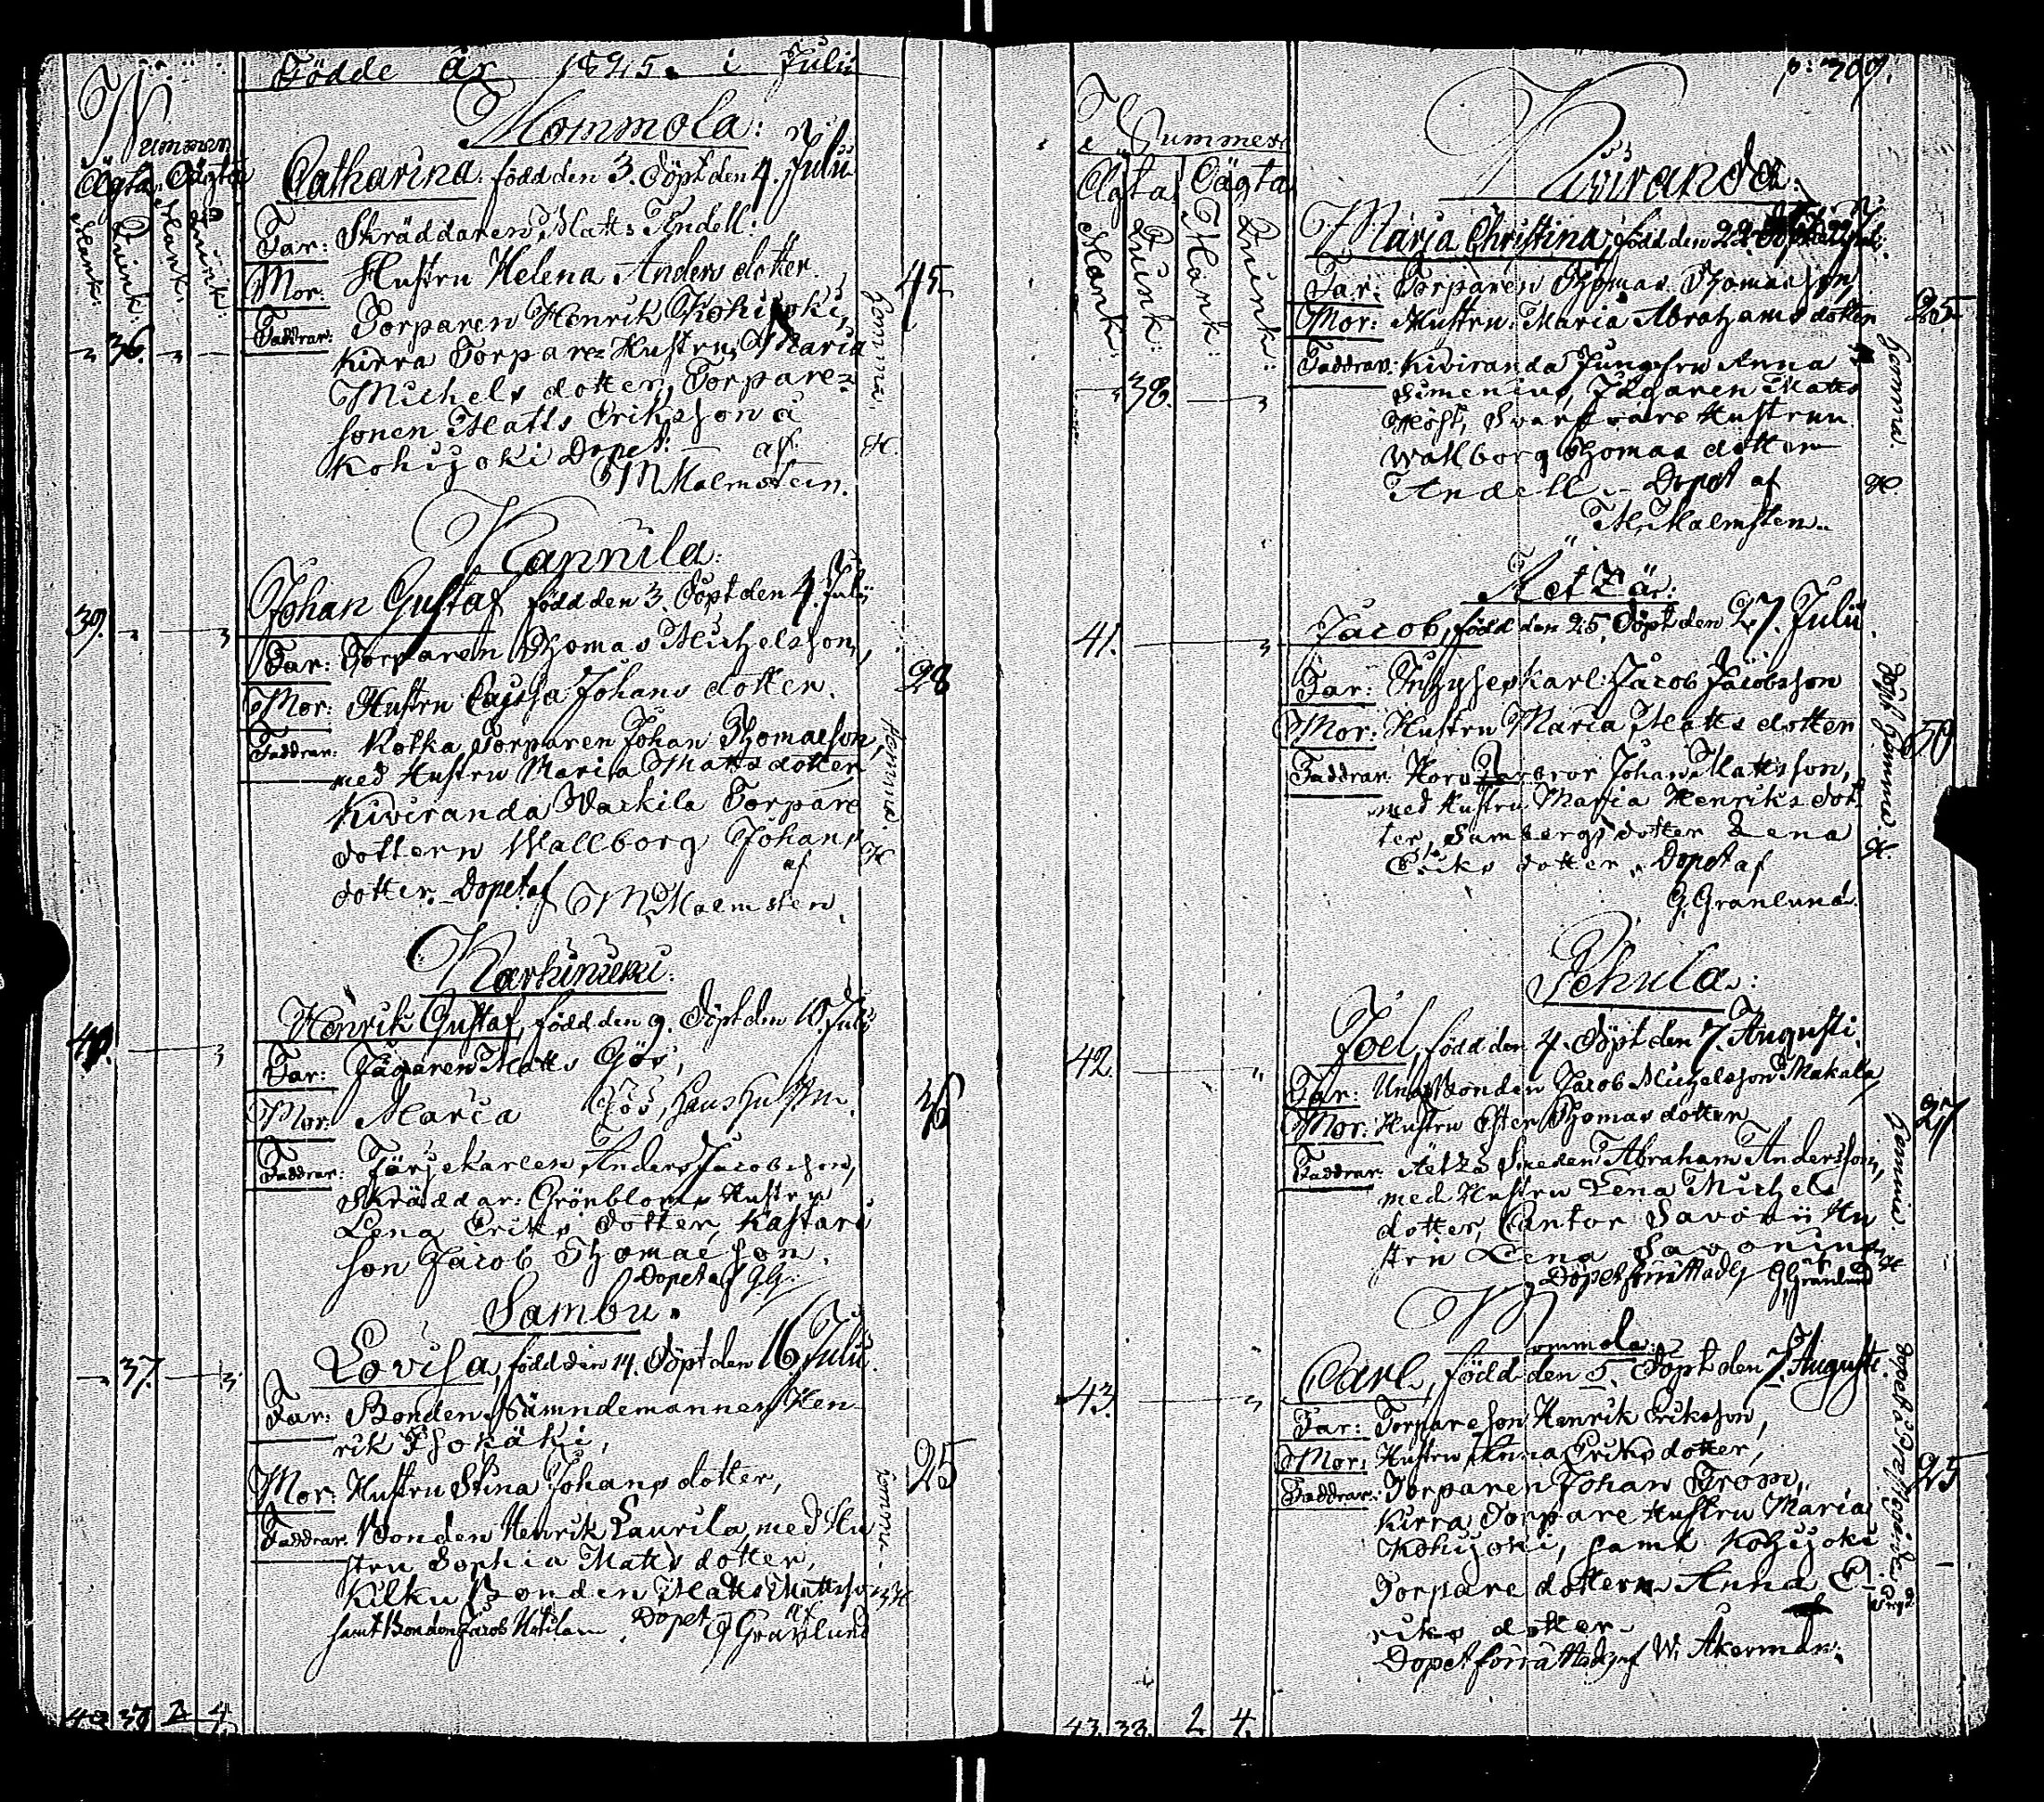 Födde år 1825. i Julii
Nummer
Ägta. Oägta
Mank: Quink: Mank: Quink:
Mommola:
Catharina. född den 3. Döpt den 4. Julii
Far: Skräddaren Matts Andell.
Mor: Hustru Helena Anders dotter.
45
36.
Faddrar: Torparen Henrik Kohijoki,
Kirra Torpare Hustru, Maria
Michels dotter, Torpare-
sonen Matts Eriksson å
Kohijoki Dopet: af
M Malmstein.
Hemma. H.
Kannila:
39.
Johan Gustaf född den 3. Döpt den 4. Julii
Far: Torparen Thomas Michelsson,
Mor: Hustru Cajsa Johans dotter.
28
Faddrar: Kotka Torparen Johan Thomasson,
med Hustru Maria Matts dotter
Kiviranda Wackila Torpare
dottern Wallborg Johans
dotter. Dopet af af
M. Malmsten.
Hemma. H
Karhinieni:
40.
Henrik Gustaf, född den 9. Döpt den 10. Julii
Far: Jägaren Matts Gös,
Mor: Maria Gös, hans hustru.
36
Faddrar: Färjekarlen Anders Jacobsson,
Skräddar: Grönbloms Hustru
Lena Eriks dotter, Kastari
son Jacob Thomasson.
Dopet af GG:
Sambu.
37.
Lovisa, född den 14. Döpt den 16. Julii.
Far: Bonden Nämndemannen Hen-
rik Isokäki,
Mor: Hustru Stina Johans dotter,
25
Faddrar: Bonden Henrik Laurila, med Hu
stru Sophia Matts dotter,
Kilku Bonden Matts Mattsson
samt Bonden Jacob Uotila Dopet af
G Granlund
Hemma. H
40 37 2 4
p: 309.
Nummer
Ägta Oägta
Mank: Quink: Mank: Quink:
Kiviranda:
Marja Christina, född den 22
Far: Torparen Thomas Thomasson,
Mor: Hustru Maria Abrahams dotter
25
38.
Faddrar: Kiviranda Jungfru Anna
Simenius, Jägaren Matts
Höst, Svarfvare Hustrun
Wallborg Thomas dotter
Andell. Dopet af
M. Malmsten.
Hemma. H.
Äetzä:
41.
Jacob, född den 25. Döpt den 27. Julii.
Far: Inhyses Karl: Jacob Jacobsson
Mor: Hustru Maria Matts dotter
50
Faddrar: Johan Mattsson,
med Hustru Maria Henriks dot
ter, dotter Lena
Eriks dotter. Dopet af
G, Granlund.
Hemma. H.
Pehula:
42.
Joel, född den 4. Döpt den 7. Augusti.
Far: Unga Bonden Jacob Michelsson Makala
Mor: Hustru Ester Thomas dotter
27
Faddrar: Äetzä Smeden Abraham Andersson,
med Hustru Lena Michels
dotter, Cantor Savonii Hu
stru Lena Savonius
Dopet förrättadt af G, Granlund
Hemma. H
Mommola:
43.
Carl, född den 5. Döpt den 7. Augusti.
Far: Torpareson Henrik Eriksson,
Mor: Hustru Anna Eriks dotter,
25
Faddrar: Torparen Johan From,
Kirra Torpare Hustru Maria
Kohijoki, samt Kohijoki
Torpare dottern Anna E-
riks dotter.
Dopet förrättadt af W. Åkerman.
43. 38. 2 4.